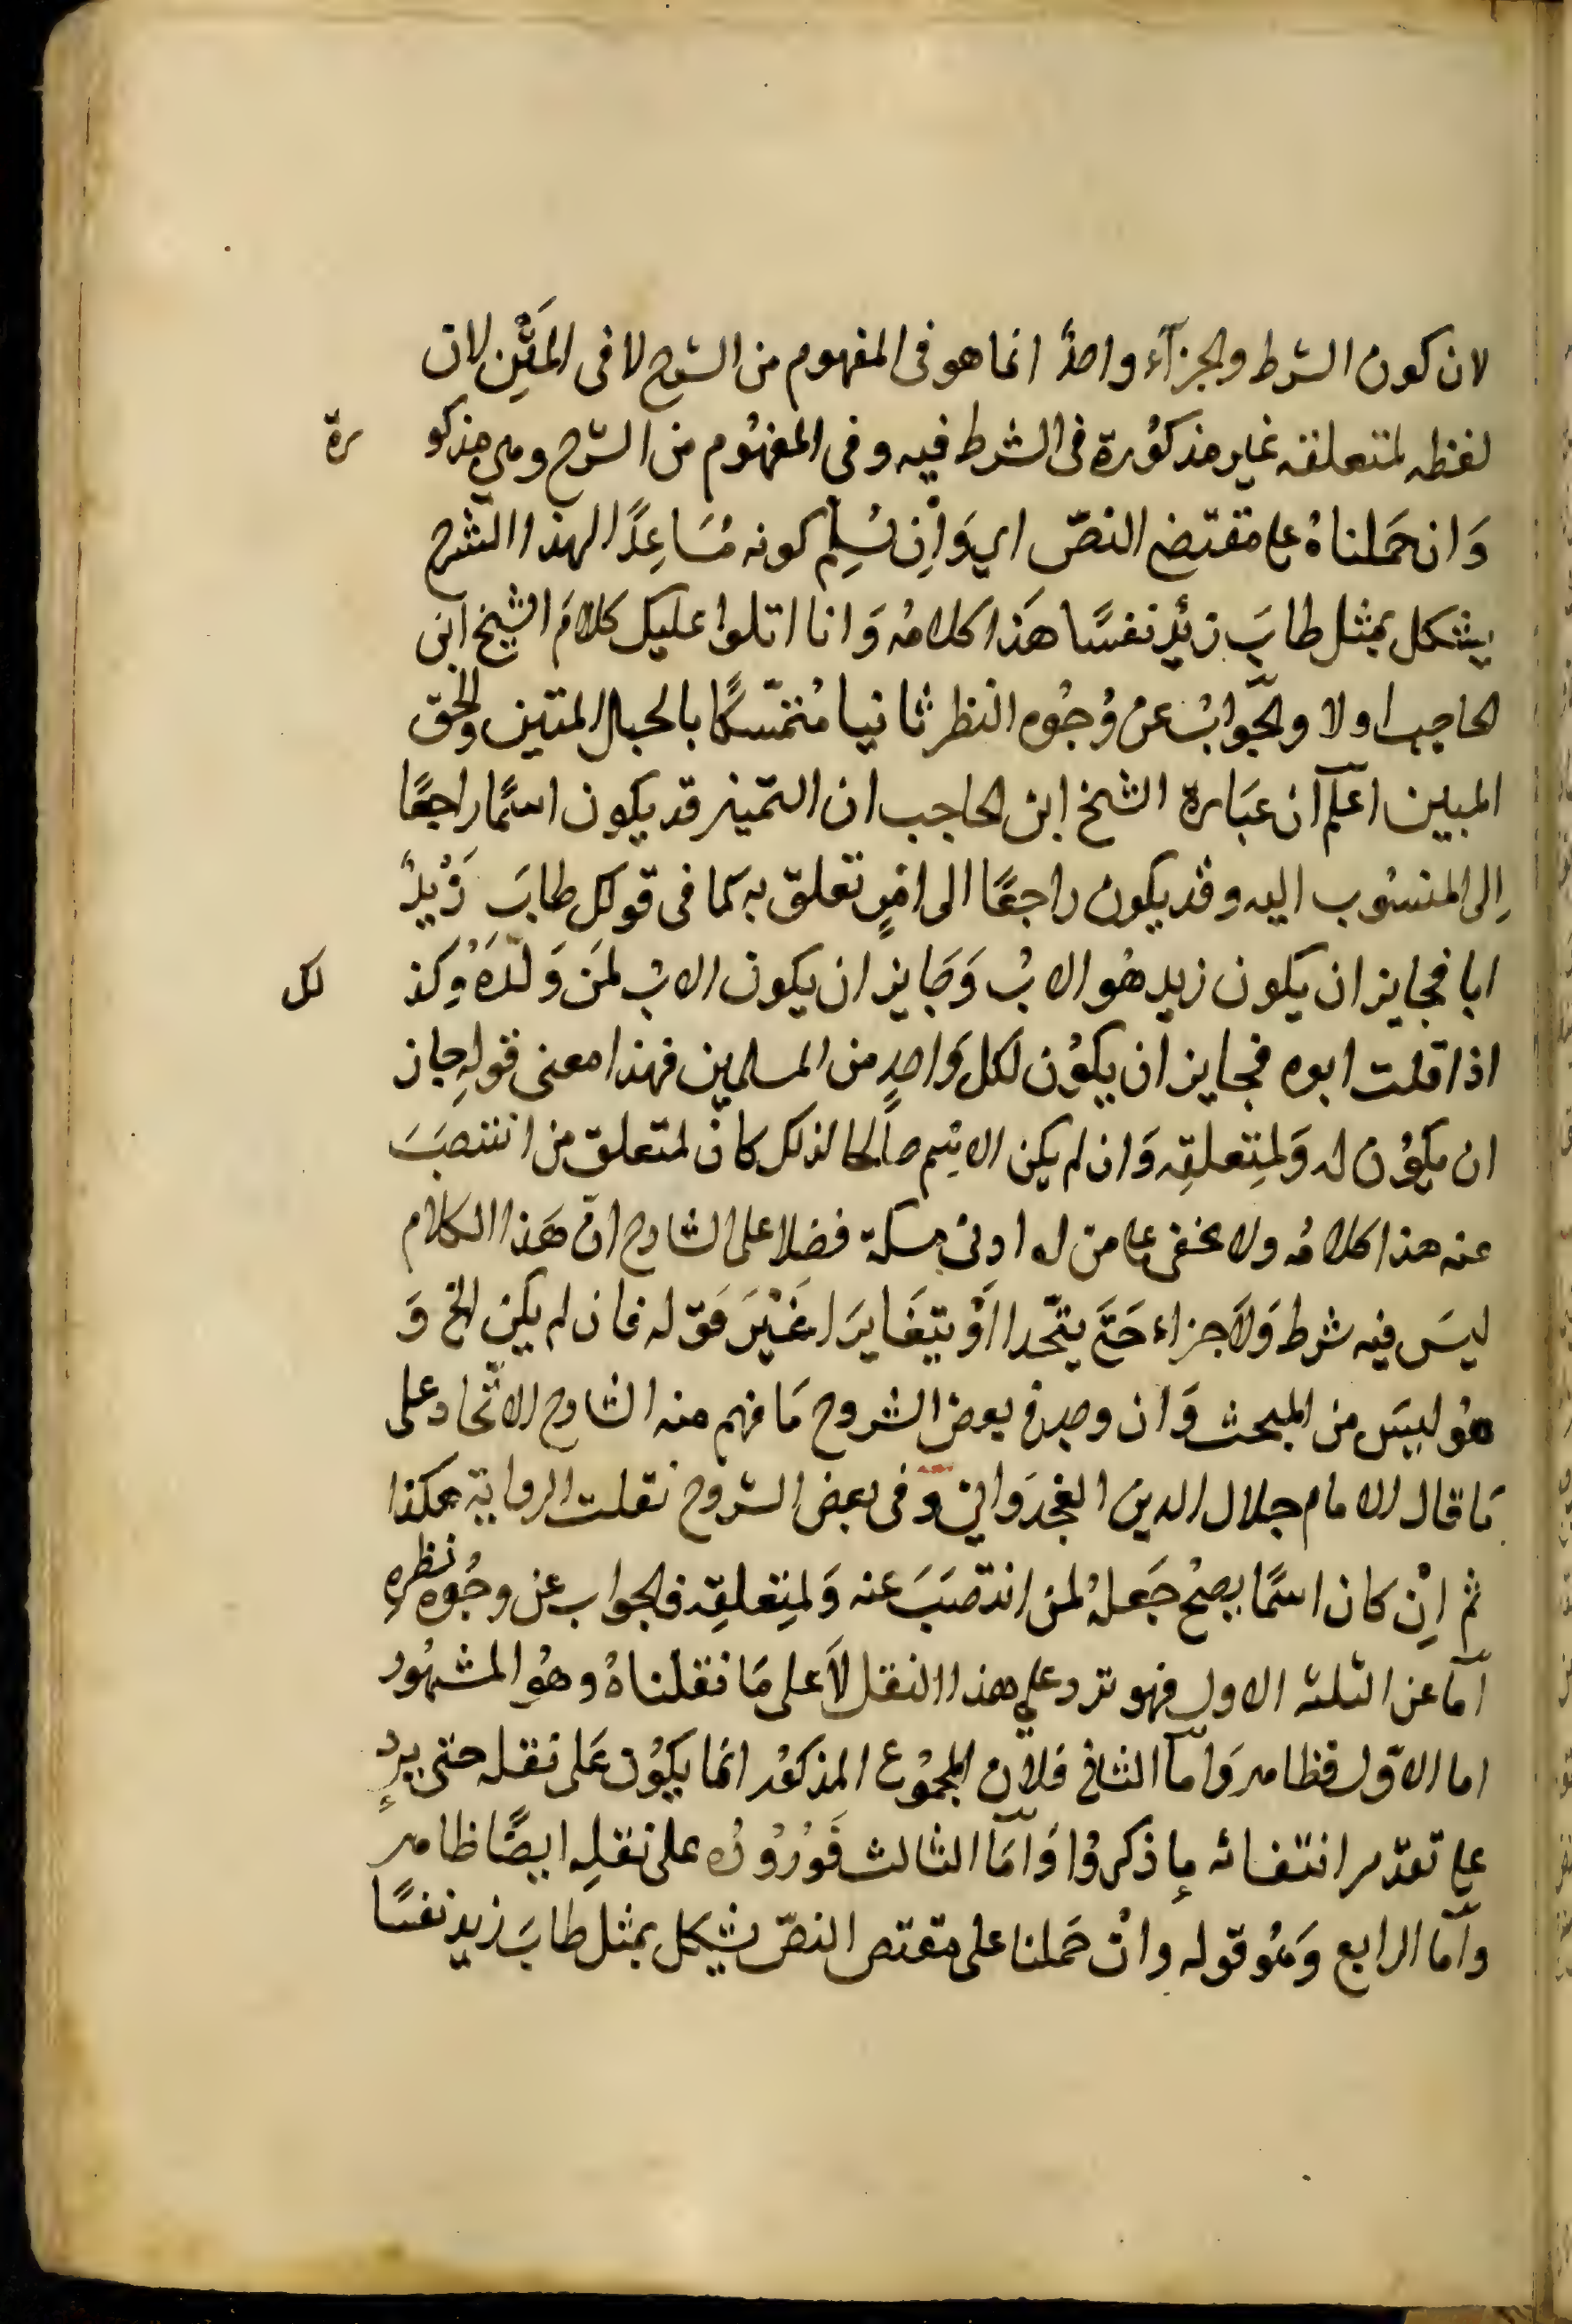 لان كون الشرط والجزآء واحدٌ انما هو فى المفهوم من الشرح لا فى المَتْنِ لان
لفظه لمتعلقه غير مذكوُرة فى الشرط فيه وفى المفهُوم من الشرح وهى مذكورة
وَان حَملناهُ على مقتضى النصّ اى وَاِن سُلِّم كونه مُسَاعِدًا لهذا الشرح
يشكل بمثل طابَ زَيْدٌ نفسًا هَذا كلامُه وَانا اتلوا عليك كلامَ الشيخ ابن
الحاجب اولا والجوَابُ عن وُجُوه النظر ثانيا مُتمّسكًا بالحبال المتين والحق
المبين اعلم ان عبَارة الشخ ابن الحاجب ان التميز قد يكون اسمًا راجعًا
اِلى المنسُوب اليه وقد يكون راجعًا الى امرٍ تعلق به كما فى قولك طابَ زَيْدٌ
ابا فجايز ان يكون زيد هُو الابُ وَجَايز ان يكون الابُ لمَن وَلَدَهُ وكذلك
اذا قلت ابوه فجايز ان يكوُن لكل وَاحدٍ من المسلمين فهذا معنى قولهِ جاز
ان يكوُن له وَلمِتعلقِه وَان لم يكن الاسم صالحا لذلك كان لمتعلق من انتصبَ
عنه هذا كلامُه ولا يخفى على من له ادنى مسكة فضلا على الشارح ان هَذا الكلام
ليسَ فيه شرط وَلاَ جزاء حَتَّى يتّحدا اَوْ يتغَايرَا غَيْرَ قوَله فان لم يكن الخ وَ
هوُ ليسَ من المبحث وَان وجد فى بعض الشروح مَا فهم منه الشارح الاتّحاد على
مَا قال الامام جلال الدين الغجدَوانى وَفى بعض الشروح نقلت الرواية هكذا
ثم اِنْ كان اسمًا يصحُ جَعلهُ لمن انتصَبَ عنه وَلمِتعلقِه فالجواب عن وجُوه نظرهِ
اَما عن الثلثه الاول فهو ترد على هذا النقل لاَ على مَا نقلناهُ وهوُ المشهُور
اما الاوّل فظاهر وَاَما الثانى فلان المجموُع المذكوُر انما يكوُن عَلى نقله حتى يردِ
على تقدير انتفائه ما ذكروُا وَاَمَا الثالث فَوُرُوُدُه على نقلِه ايضًا ظاهر
واَما الرابع وَهوُ قوله وان حَملنا على مقتض النصّ يشكل بمثل طابَ زيد نفسًا